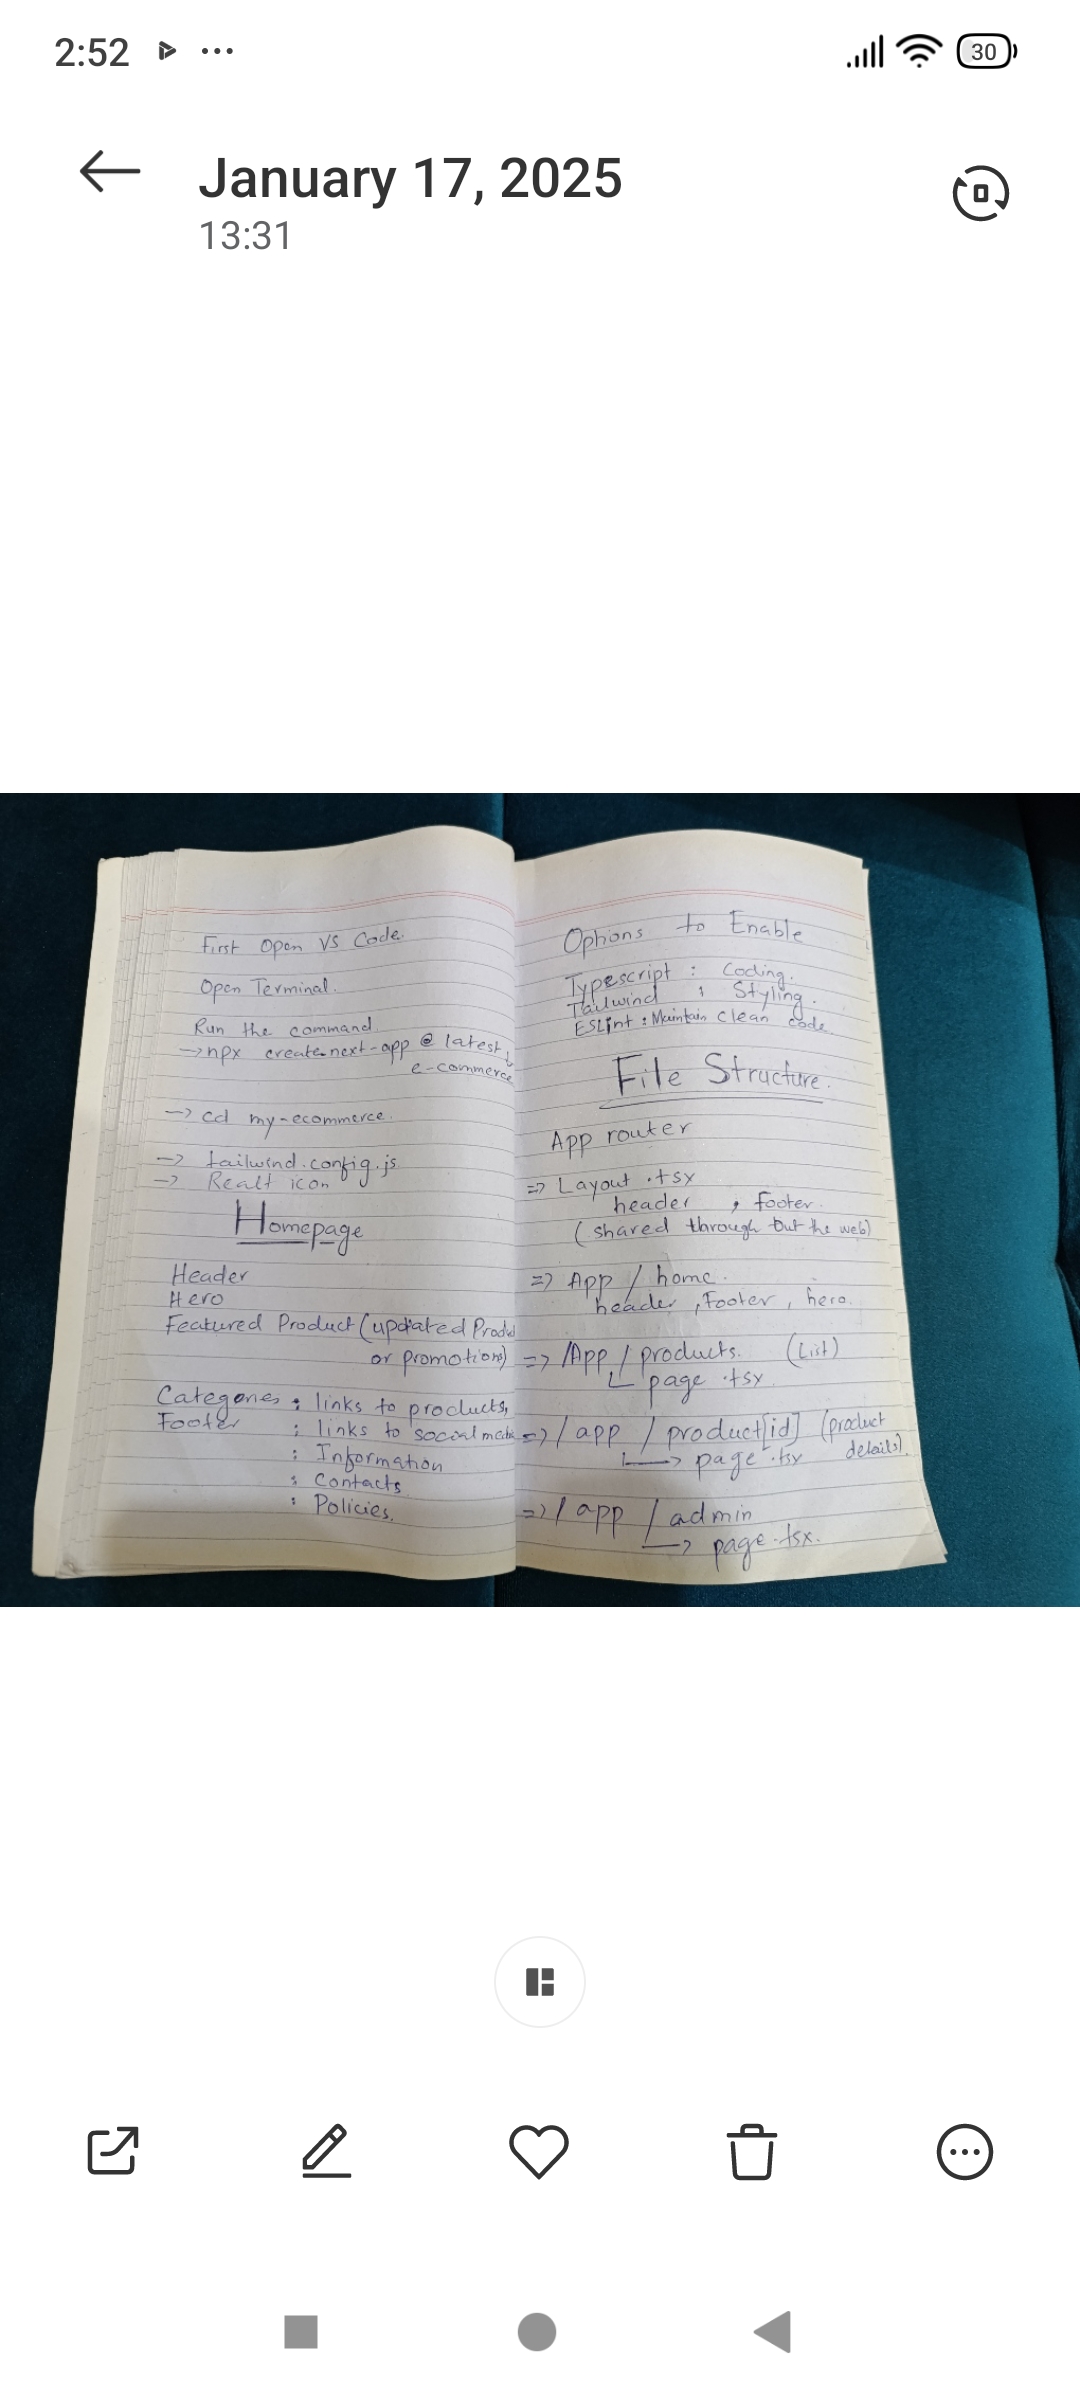 2:52
30
January 17, 2025
13:31
First Open VS Code.
Open Terminal.
Run the command
→ npx create-next-app @ latest
e-commerce
→ cd my-ecommerce.
→ tailwind.config.js
→ Realt icon
Homepage
Header
Hero
Featured Product (updated Produ
or promotions)
Categories : links to products,
Footer : links to social media
: Information
: Contacts
: Policies.
Options to Enable
Typescript : Coding.
Tailwind : Styling.
ESLint : Maintain clean code
File Structure.
App router
=> Layout .tsx
header , footer.
(shared through out the web)
=> App / home.
header , Footer , hero.
=> /App / products. (List)
page .tsx
=> / app / product[id] (product
details).
→ page .tsx
=> / app / admin
→ page .tsx.